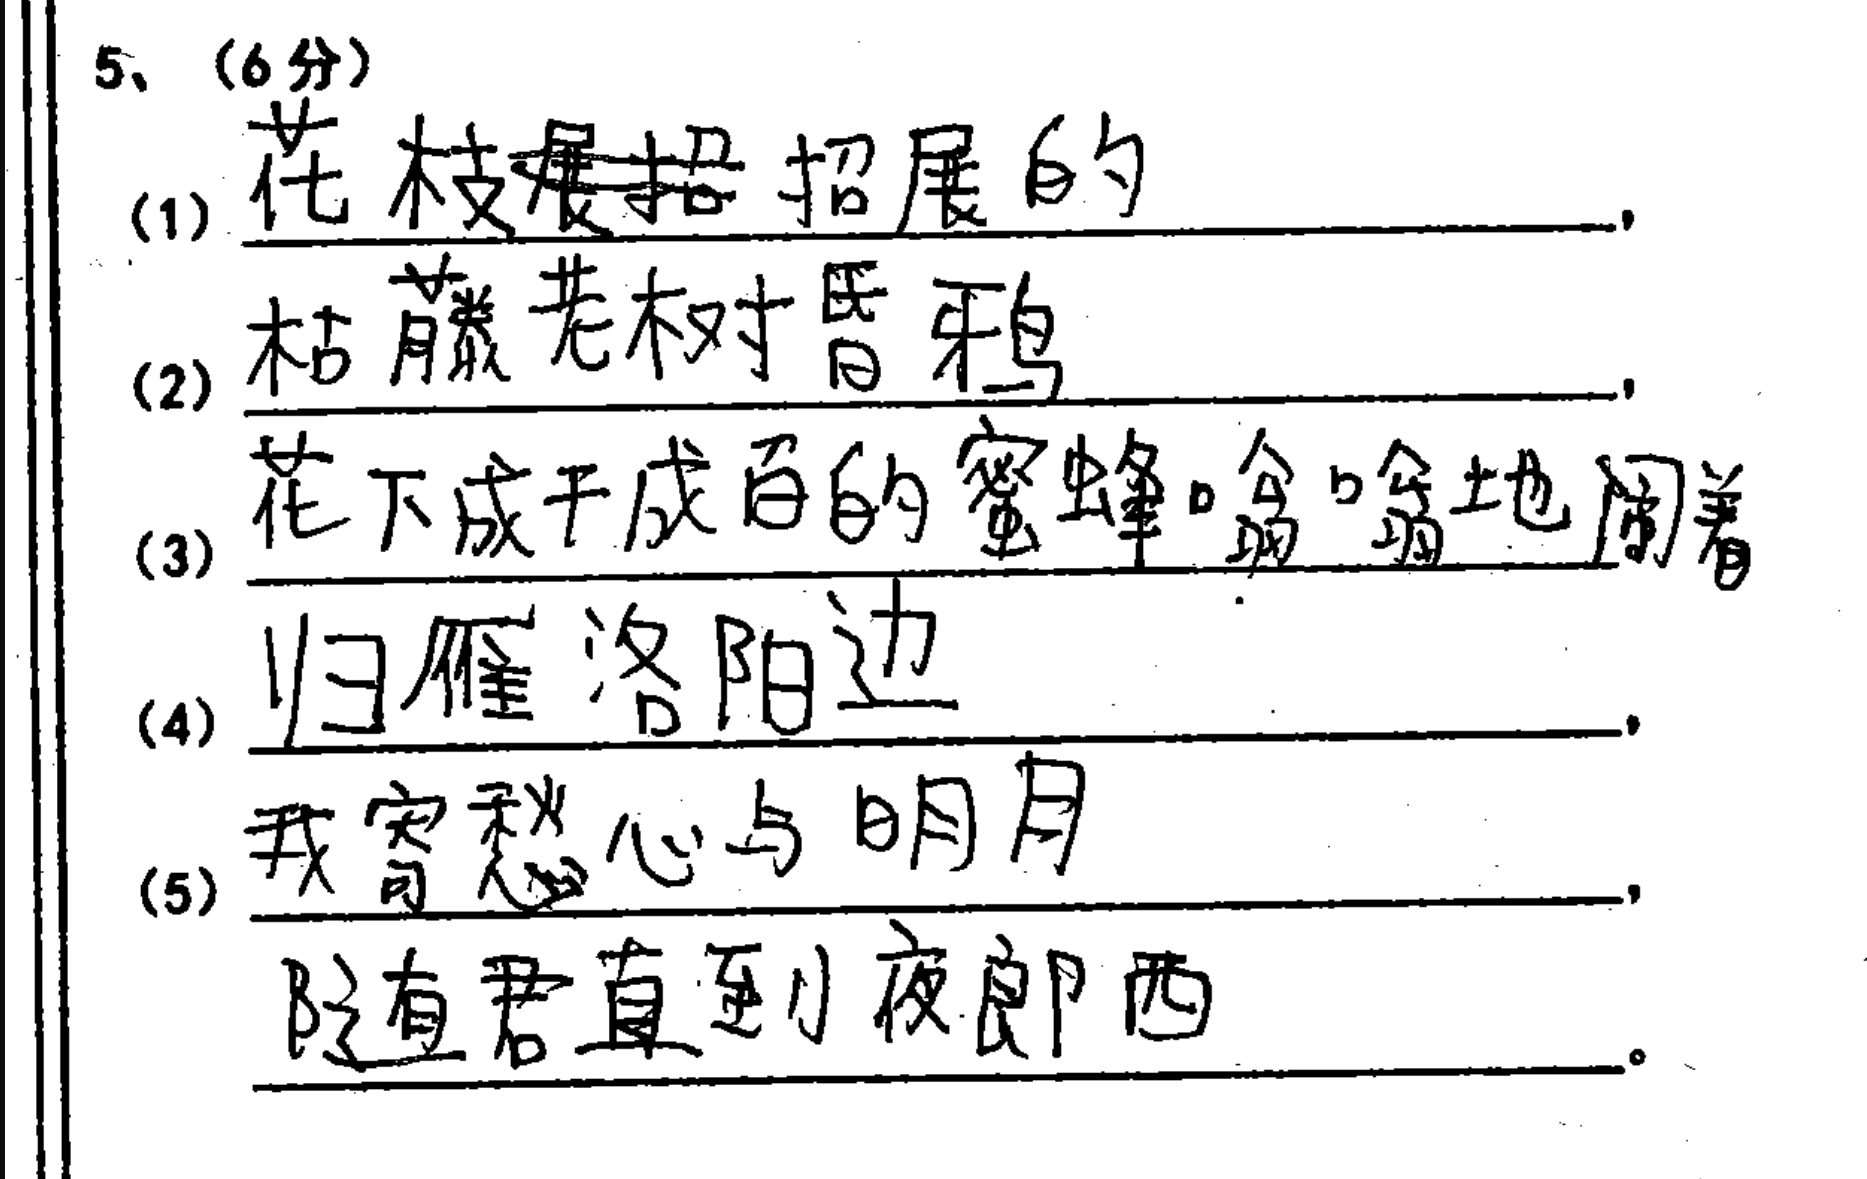 5、（6分）
（1）花枝招展的，
（2）枯藤老树昏鸦，
（3）花下成千成百的蜜蜂嗡嗡地闹着
（4）归雁洛阳边，
（5）我寄愁心与明月，
随君直到夜郎西。